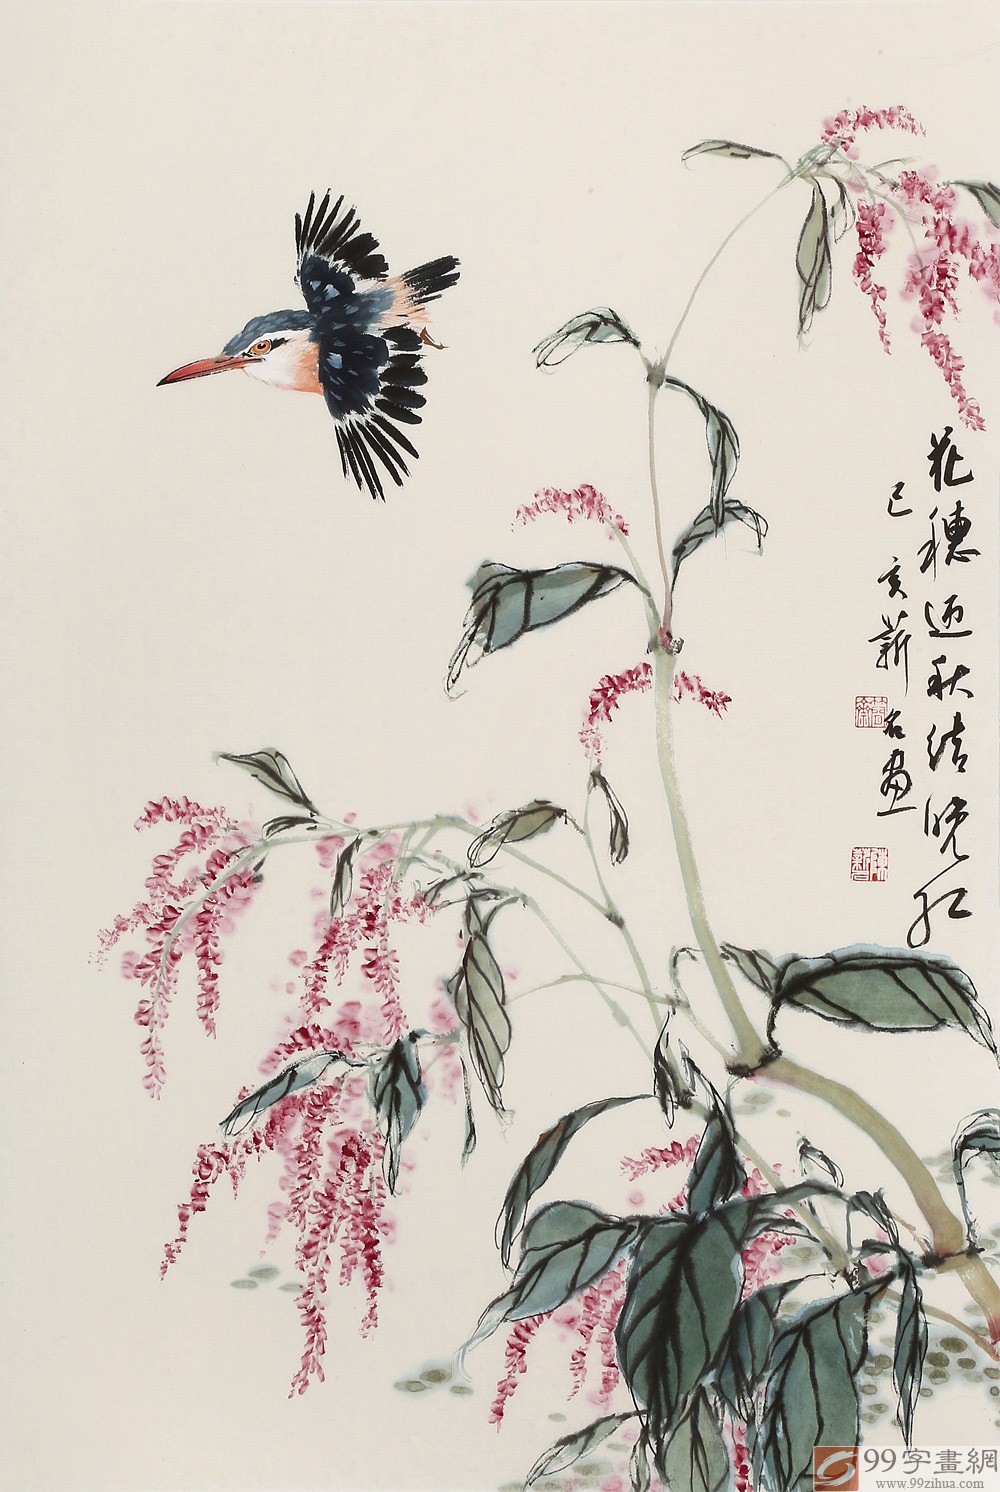 花穗迎秋结晚红
己亥薪名画
99字畫網
www.99zihua.com